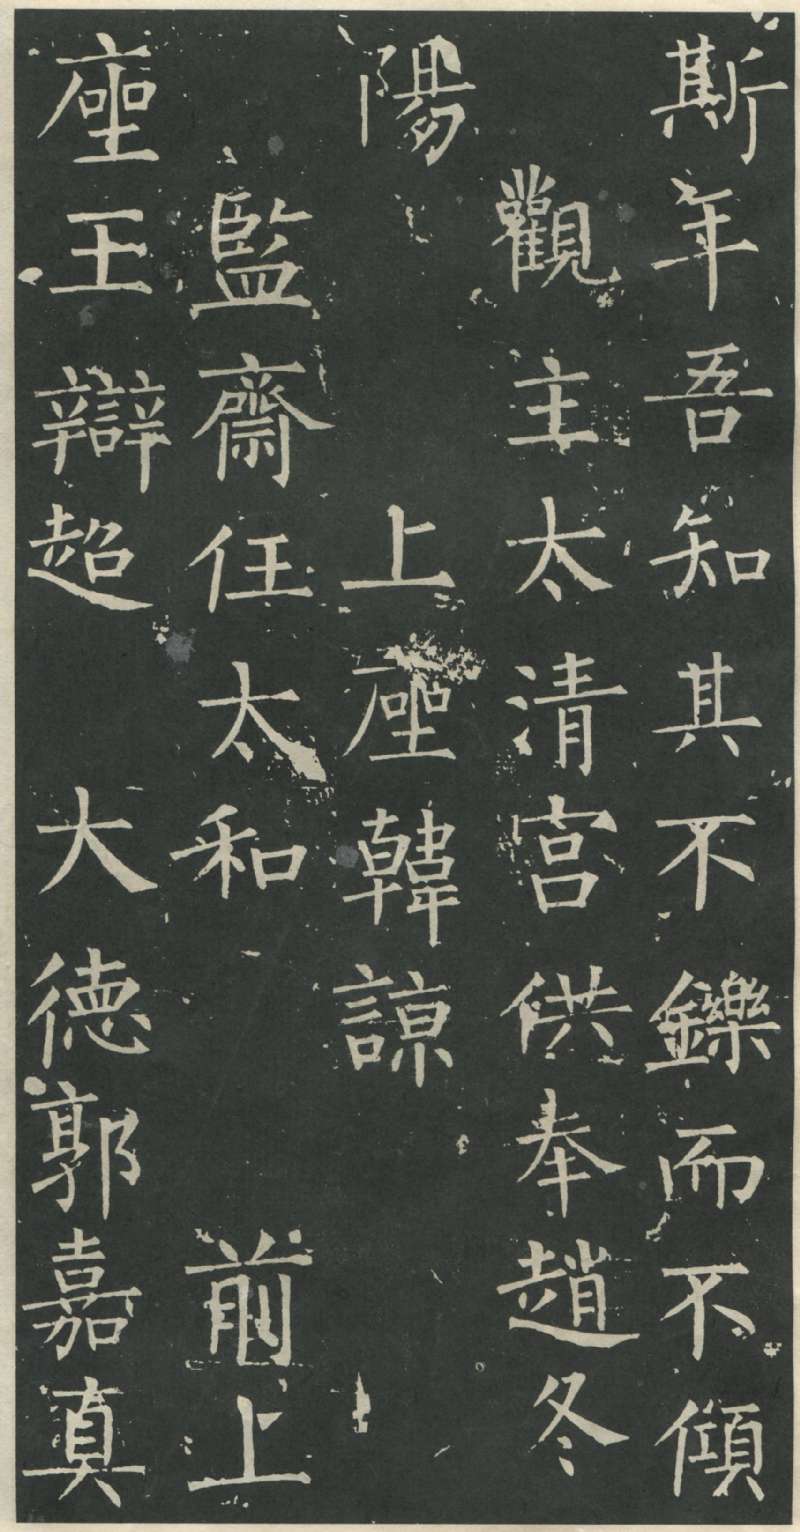 斯年吾知其不鑠而不傾
觀主太清宮供奉趙冬
陽 上座韓諒
監齋任太和 前上
座王辯超 大德郭嘉真